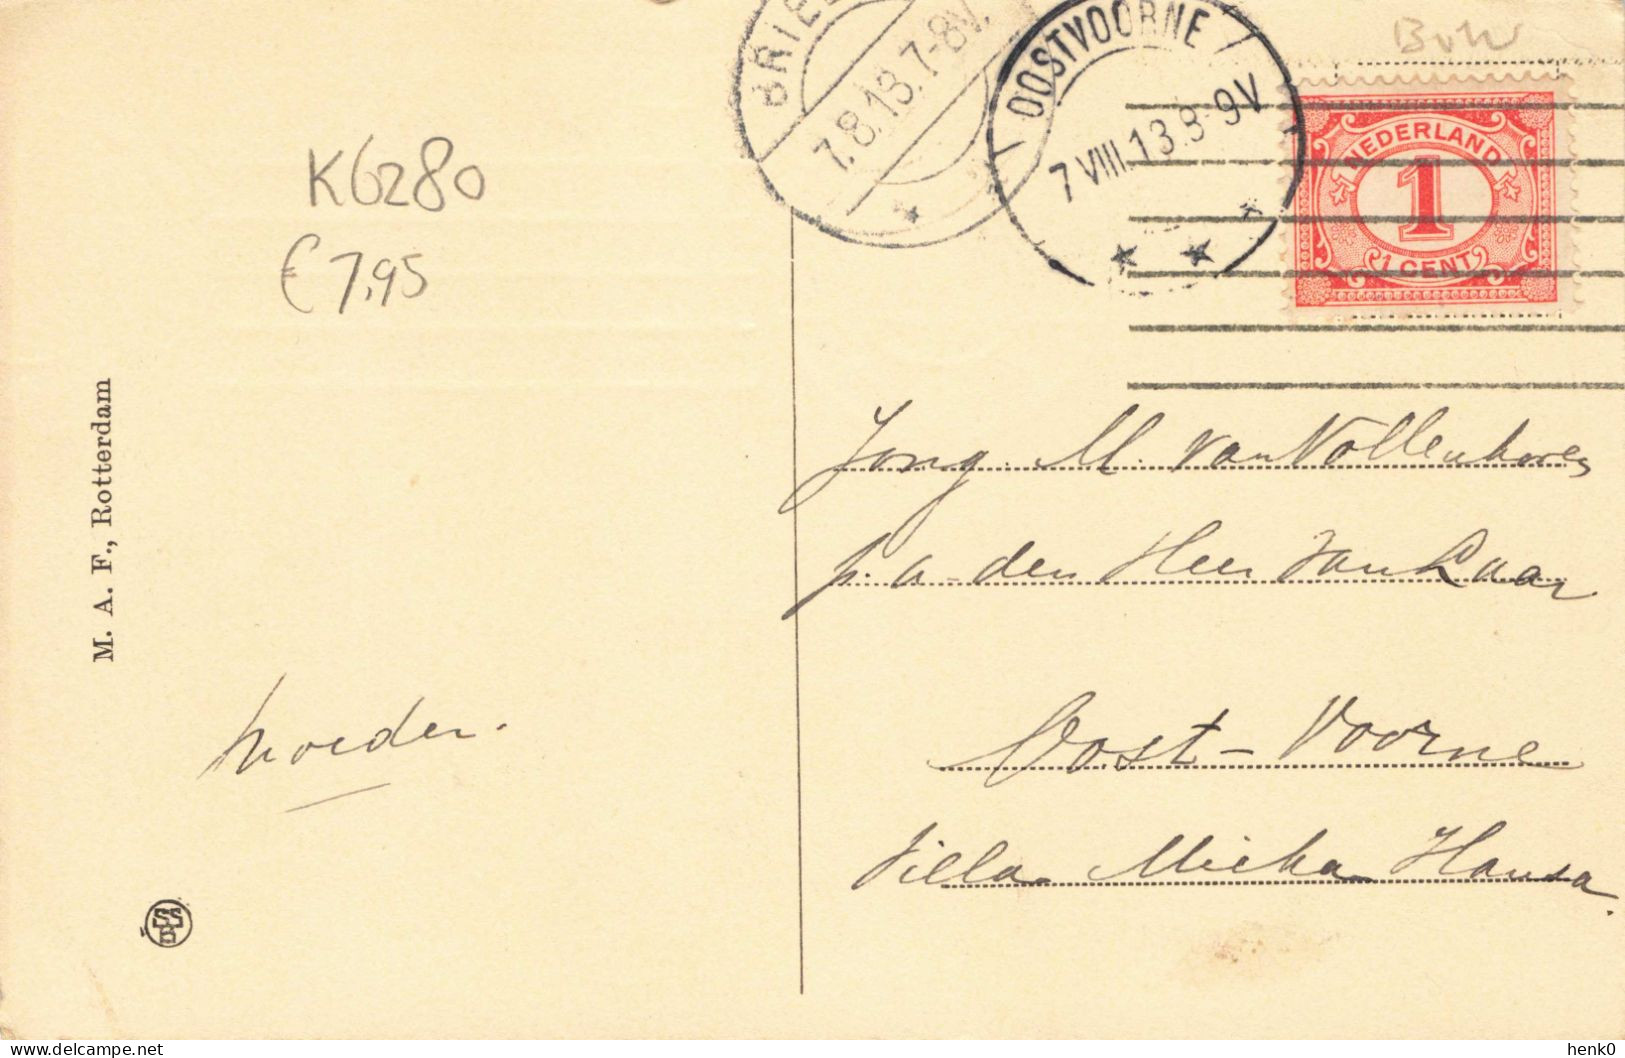 BRIEL
7.8.13.7-8V.
OOSTVOORNE
7 VIII.13.8-9V
NEDERLAND
1
1 CENT
K6280
€ 7,95
M. A. F., Rotterdam
Jong. M. van Vollenhoven
p. a. den Heer Van Laar
Oost-Voorne
Villa Micka Hansa.
moeder.
SSB
henk0